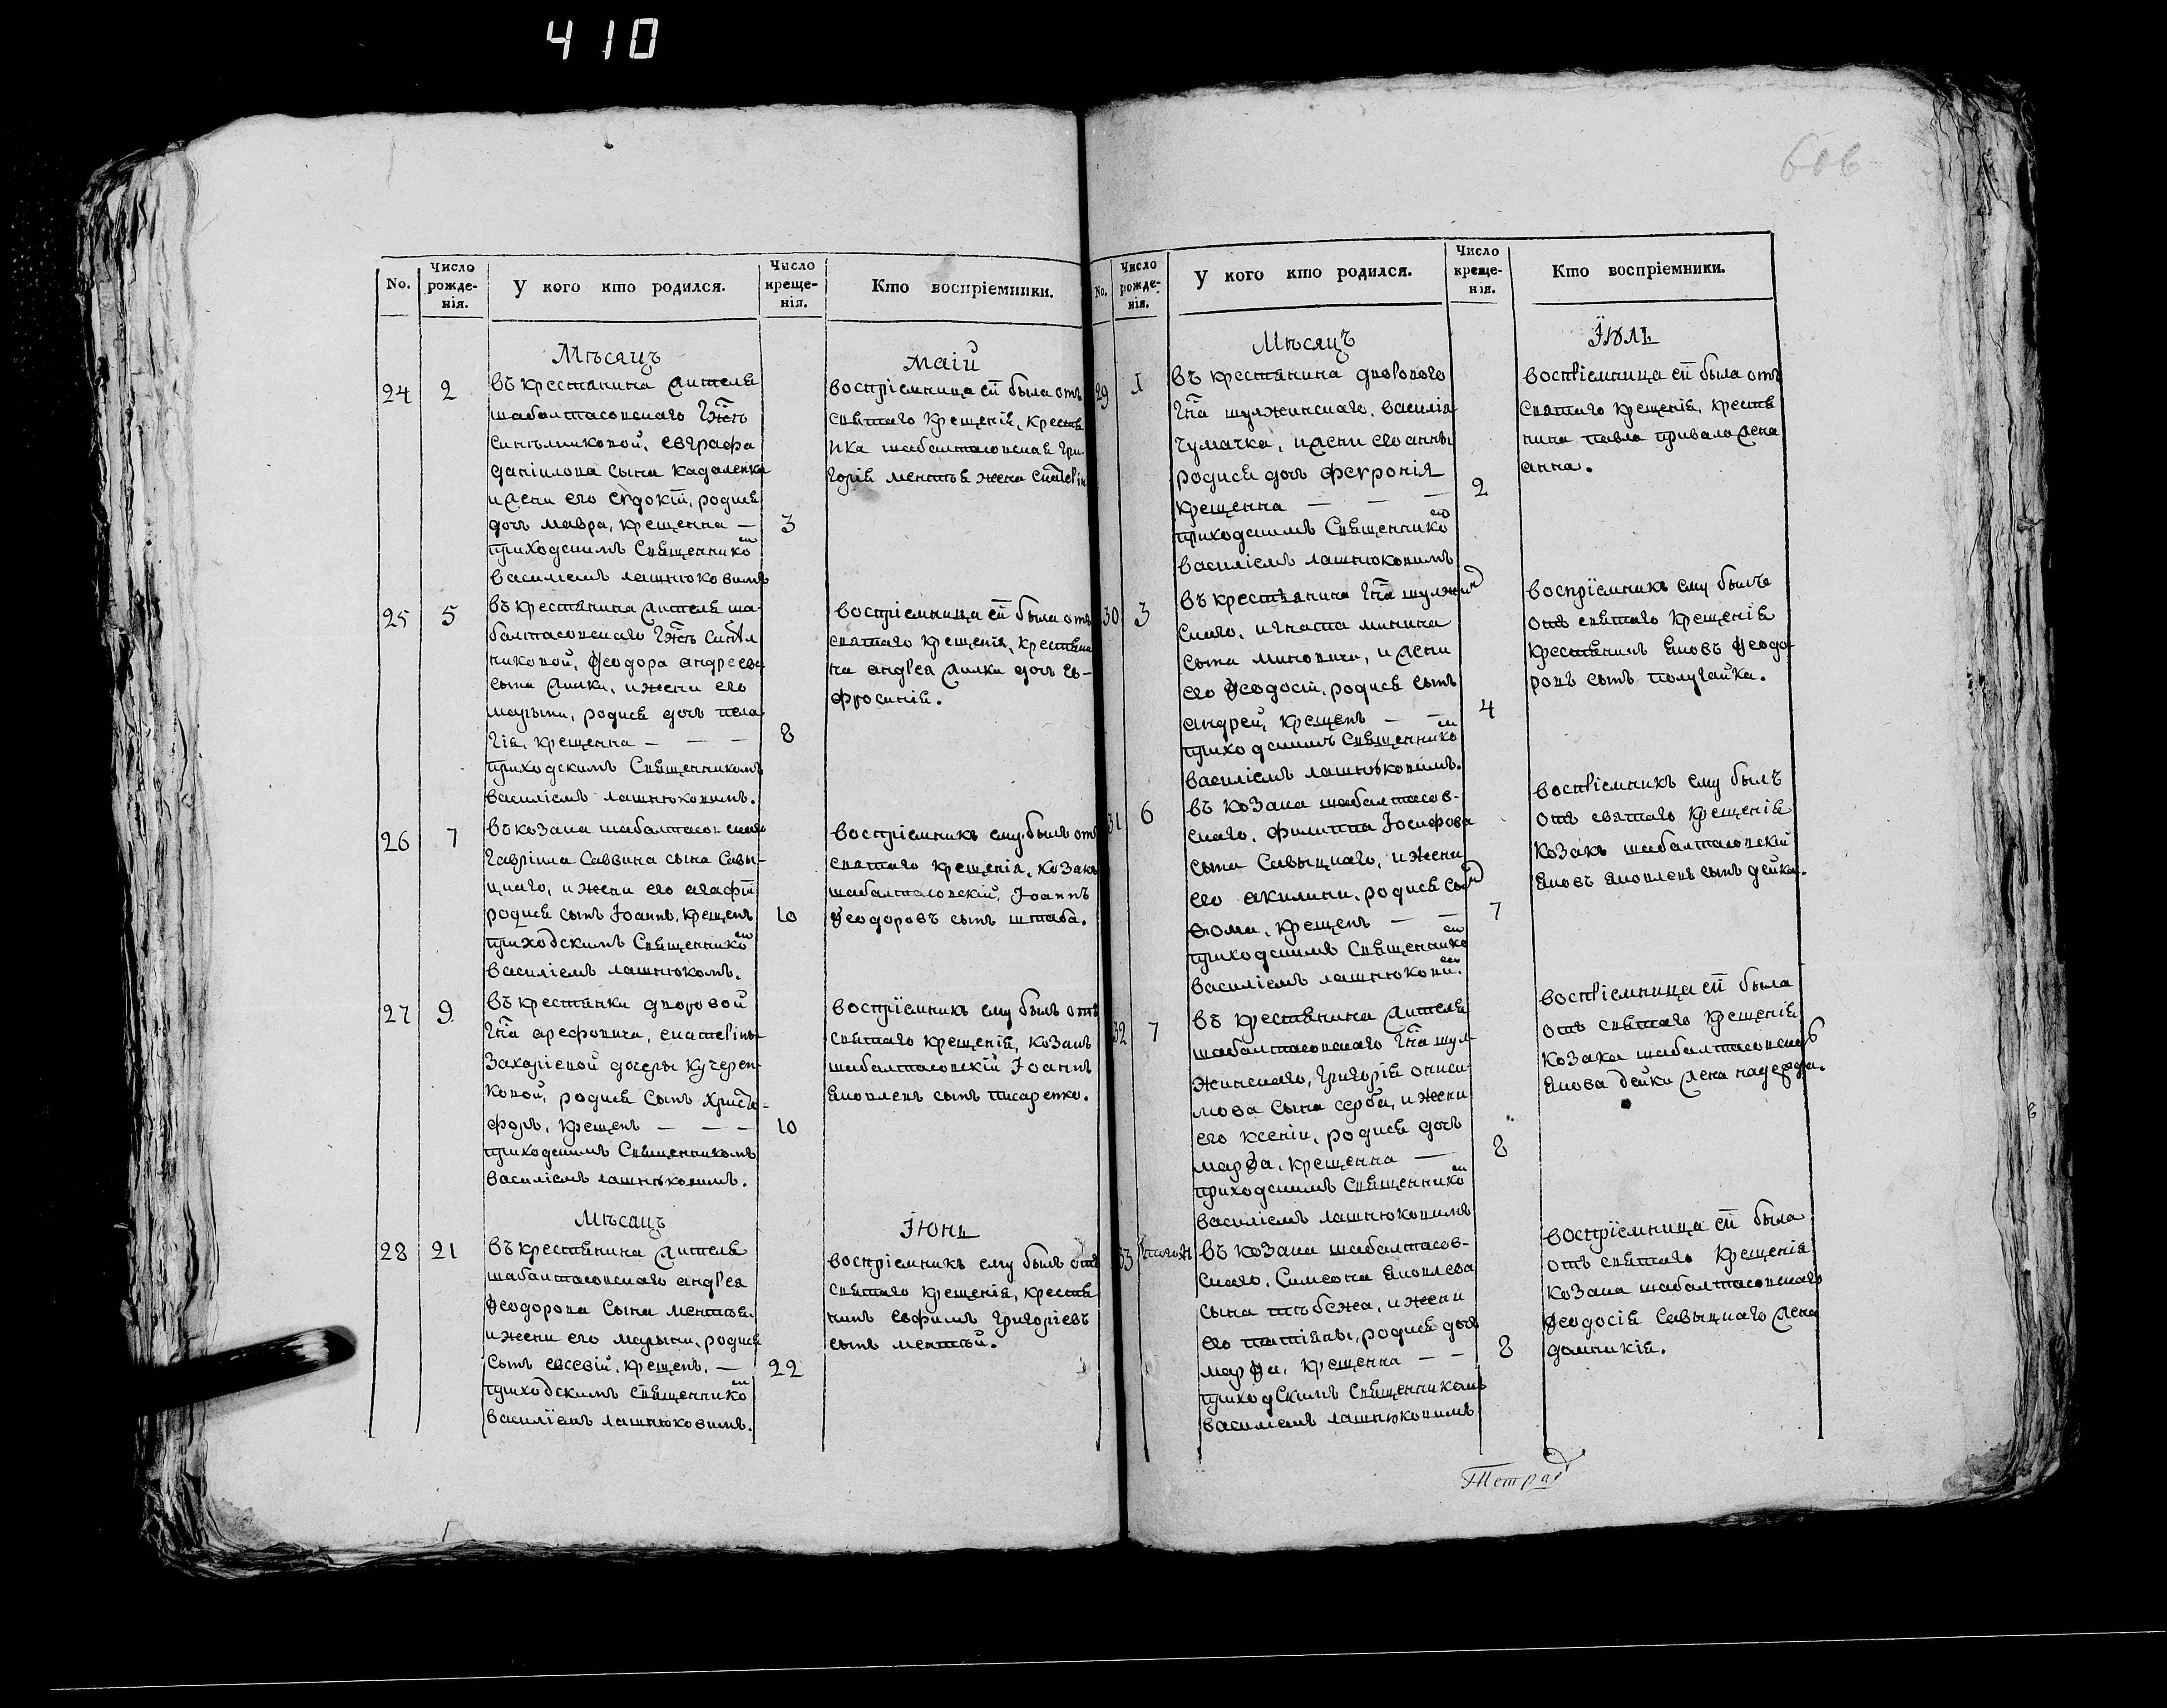 410
606
No.
Число рожде-нія.
У кого кто родился.
Число креще-нія.
Кто воспріемники.
Мѣсяцъ
маій
24
2
въ крестянина жителя
шабалтасовскаго Гжѣ
синѣлниковой, евграфа
даніилова сына кадаленка
и жени его евдокіи, родися
дочъ мавра, крещенна —
3
приходскимъ Священникомъ
василіемъ лашнюковимъ
воспріемница ей была отъ
святаго крещенія, крестя
нка шабалтасовская гри-
горія ментѣя жена
25
5
въ крестянина жителя ша-
балтасовскаго Гжѣ синѣл
никовой, Ѳеодора андреева
сына лилки, и жени его
марыни, родися дочъ пела
гія, крещенна — — —
8
приходскимъ Священникомъ
василіемъ лашнюковимъ.
воспріемница ей была отъ
святаго крещенія, крестяни
на андрея лилки дочъ ев-
фросинія.
26
7
въ козака шабалтасовскаго
гавріила саввина сына савы-
цкаго, и жени его агафіи
родися сынъ Іоаннъ, крещенъ
10
приходскимъ Священникомъ
василіемъ лашнюкомъ.
воспріемникъ ему былъ отъ
святаго крещенія, козакъ
шабалтасовскій, Іоаннъ
Ѳеодоровъ сынъ штаба.
27
9
въ крестянки дворовой
Гна арефовича, екатерины
захаріевой дочеры кучерен-
ковой, родися сынъ христо-
форъ, крещенъ — — —
10
приходскимъ Священникомъ
василіемъ лашнюковимъ.
воспріемникъ ему былъ отъ
святаго крещенія, козакъ
шабалтасовскій Іоаннъ
яковлевъ сынъ писаренко.
Мѣсацъ
Іюнь
28
21
въ крестянина жителя
шабалтасовскаго андрея
Ѳеодорова сына ментѣя.
и жени его марыни, родися
сынъ евсевій, крещенъ. —
22
приходскимъ священникомъ
василіемъ лашнюковимъ.
воспріемникъ ему былъ отъ
святаго крещенія, крестя
нинъ евфимъ григоріевъ
сынъ ментѣй.
No.
Число рожде-нія.
У кого кто родился.
Число креще-нія.
Кто воспріемники.
Мѣсяцъ
Іюль
29
1
въ крестянина дворового
Гна шулжинскаго, василія
чумачка, и жени его анны
родися дочъ февронія
крещенна — — —
2
приходскимъ Священникомъ
василіемъ лашнюковимъ
воспріемница ей была отъ
святаго крещенія, крестя
нина павла привала жена
анна.
30
3
въ крестянина Гна шулжин
скаго, игната минина
сына миновича, и жени
его Ѳеодосіи, родися сынъ
андрей, крещенъ — —
4
приходскимъ священникомъ
василіемъ лашнюковимъ.
воспріемникъ ему былъ
отъ святаго крещенія
крестянинъ яковъ Ѳеодо-
ровъ сынъ полугайка.
31
6
въ козака шабалтасов-
скаго, филиппа Іосифова
сына савыцкаго, и жени
его акилини, родися сынъ
Ѳома, крещенъ — —
7
приходскимъ священникомъ
василіемъ лашнюковимъ.
воспріемникъ ему былъ
отъ святаго крещенія
козакъ шабалтасовскій
яковъ яковлевъ сынъ дейка.
32
7
въ крестянина жителя
шабалтасовскаго Гна шул-
жинскаго, григорія ониси
мова сына серба, и жени
его ксеніи, родися дочъ
марѳа, крещенна —
8
приходскимъ священникомъ
василіемъ лашнюковимъ
воспріемница ей была
отъ святаго крещенія
козака шабалтасовскаго
якова дейки жена надежда.
33
тогожъ
въ козака шабалтасов-
скаго, Симеона яковлева
сына, и жени
его татіяны, родися дочъ
марѳа, крещенна — —
8
приходскимъ священникомъ
василіемъ лашнюковимъ
воспріемница ей была
отъ святаго крещенія
козака шабалтасовскаго
Ѳеодосія савыцкаго жена
домникія.